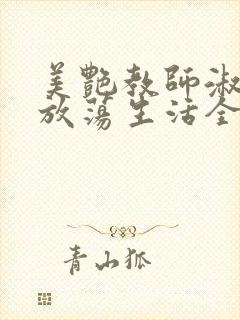 美艷教師淑
放蕩生活全
青山狐